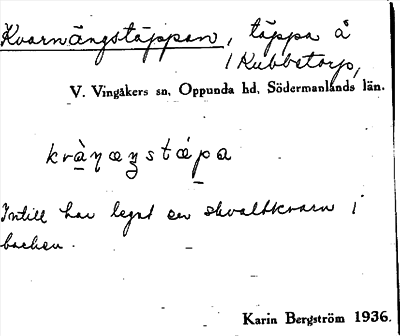 Kvarnängstäppan, täppa å
1 Kubbetorp,
V. Vingåkers sn, Oppunda hd, Södermanlands län.
kvàɳæŋstæ̀pa
Intill har legat en skvaltkvarn i
backen.
Karin Bergström 1936.